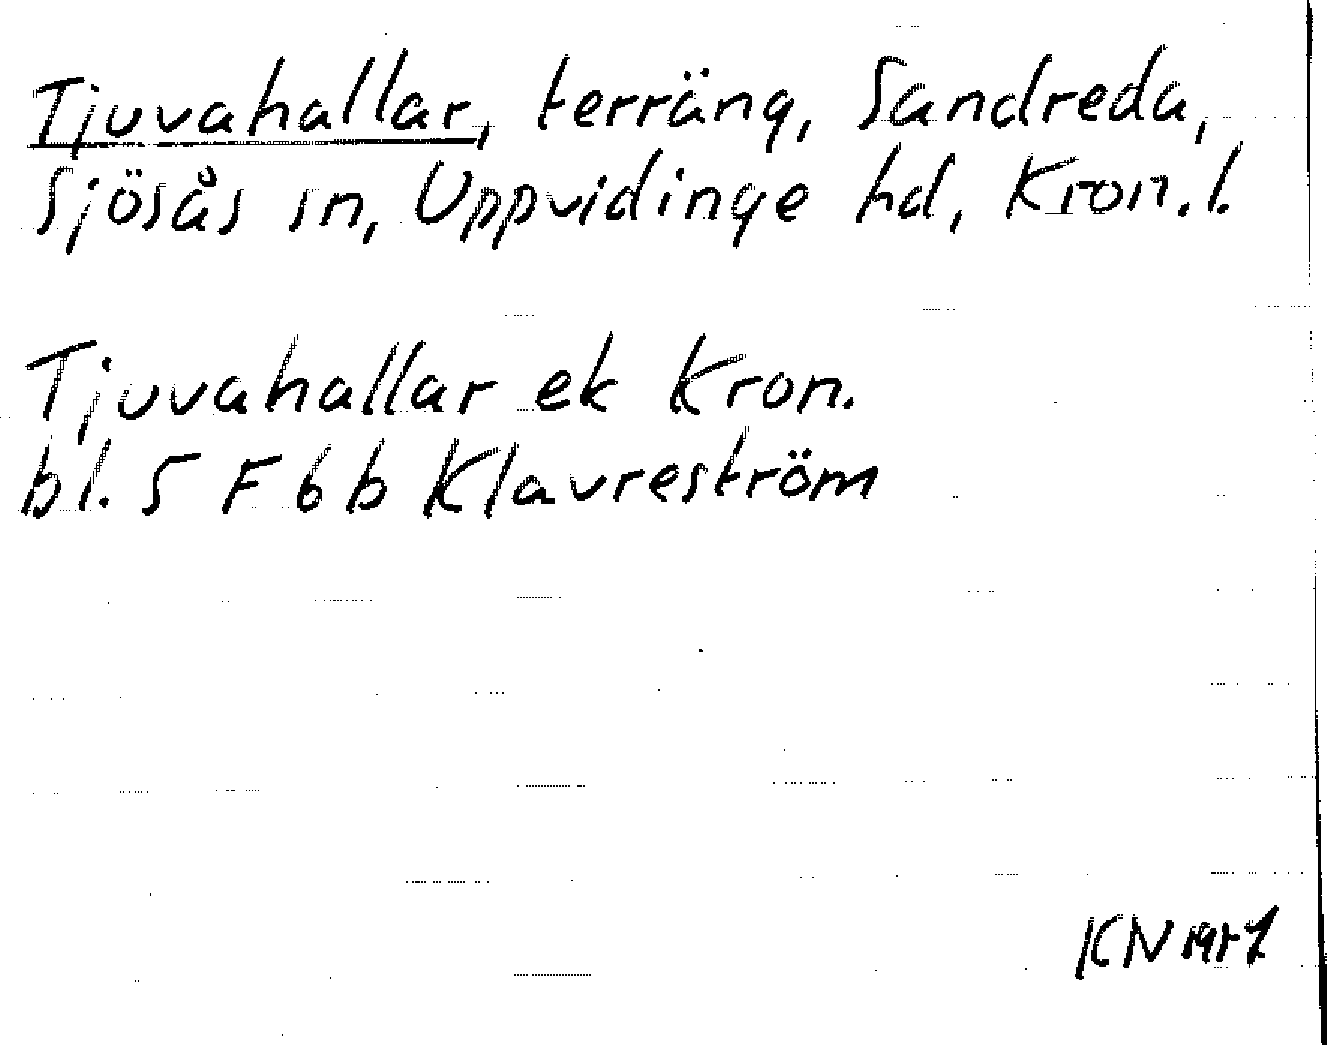 Tjuvahallar, terräng, Sandreda,
Sjösås sn, Uppvidinge hd, Kron.l.
Tjuvahallar ek Kron.
bl. 5 F 6 b Klavreström
KN